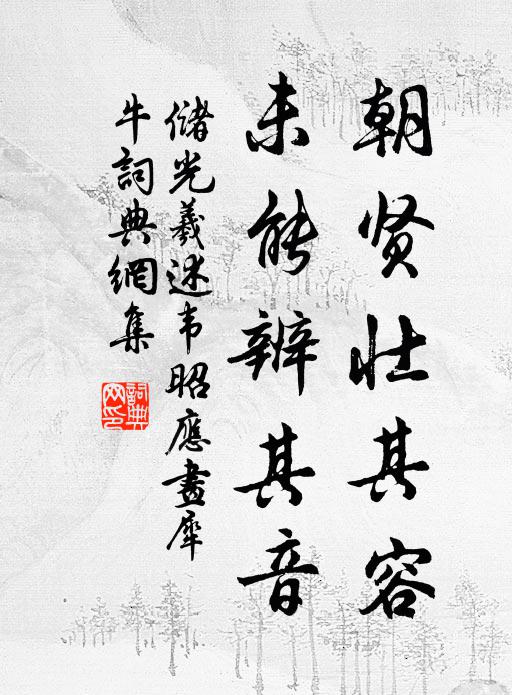 朝贤壮其容
未能辨其音
储光羲述韦昭应画犀
牛詞典網集
詞典网印